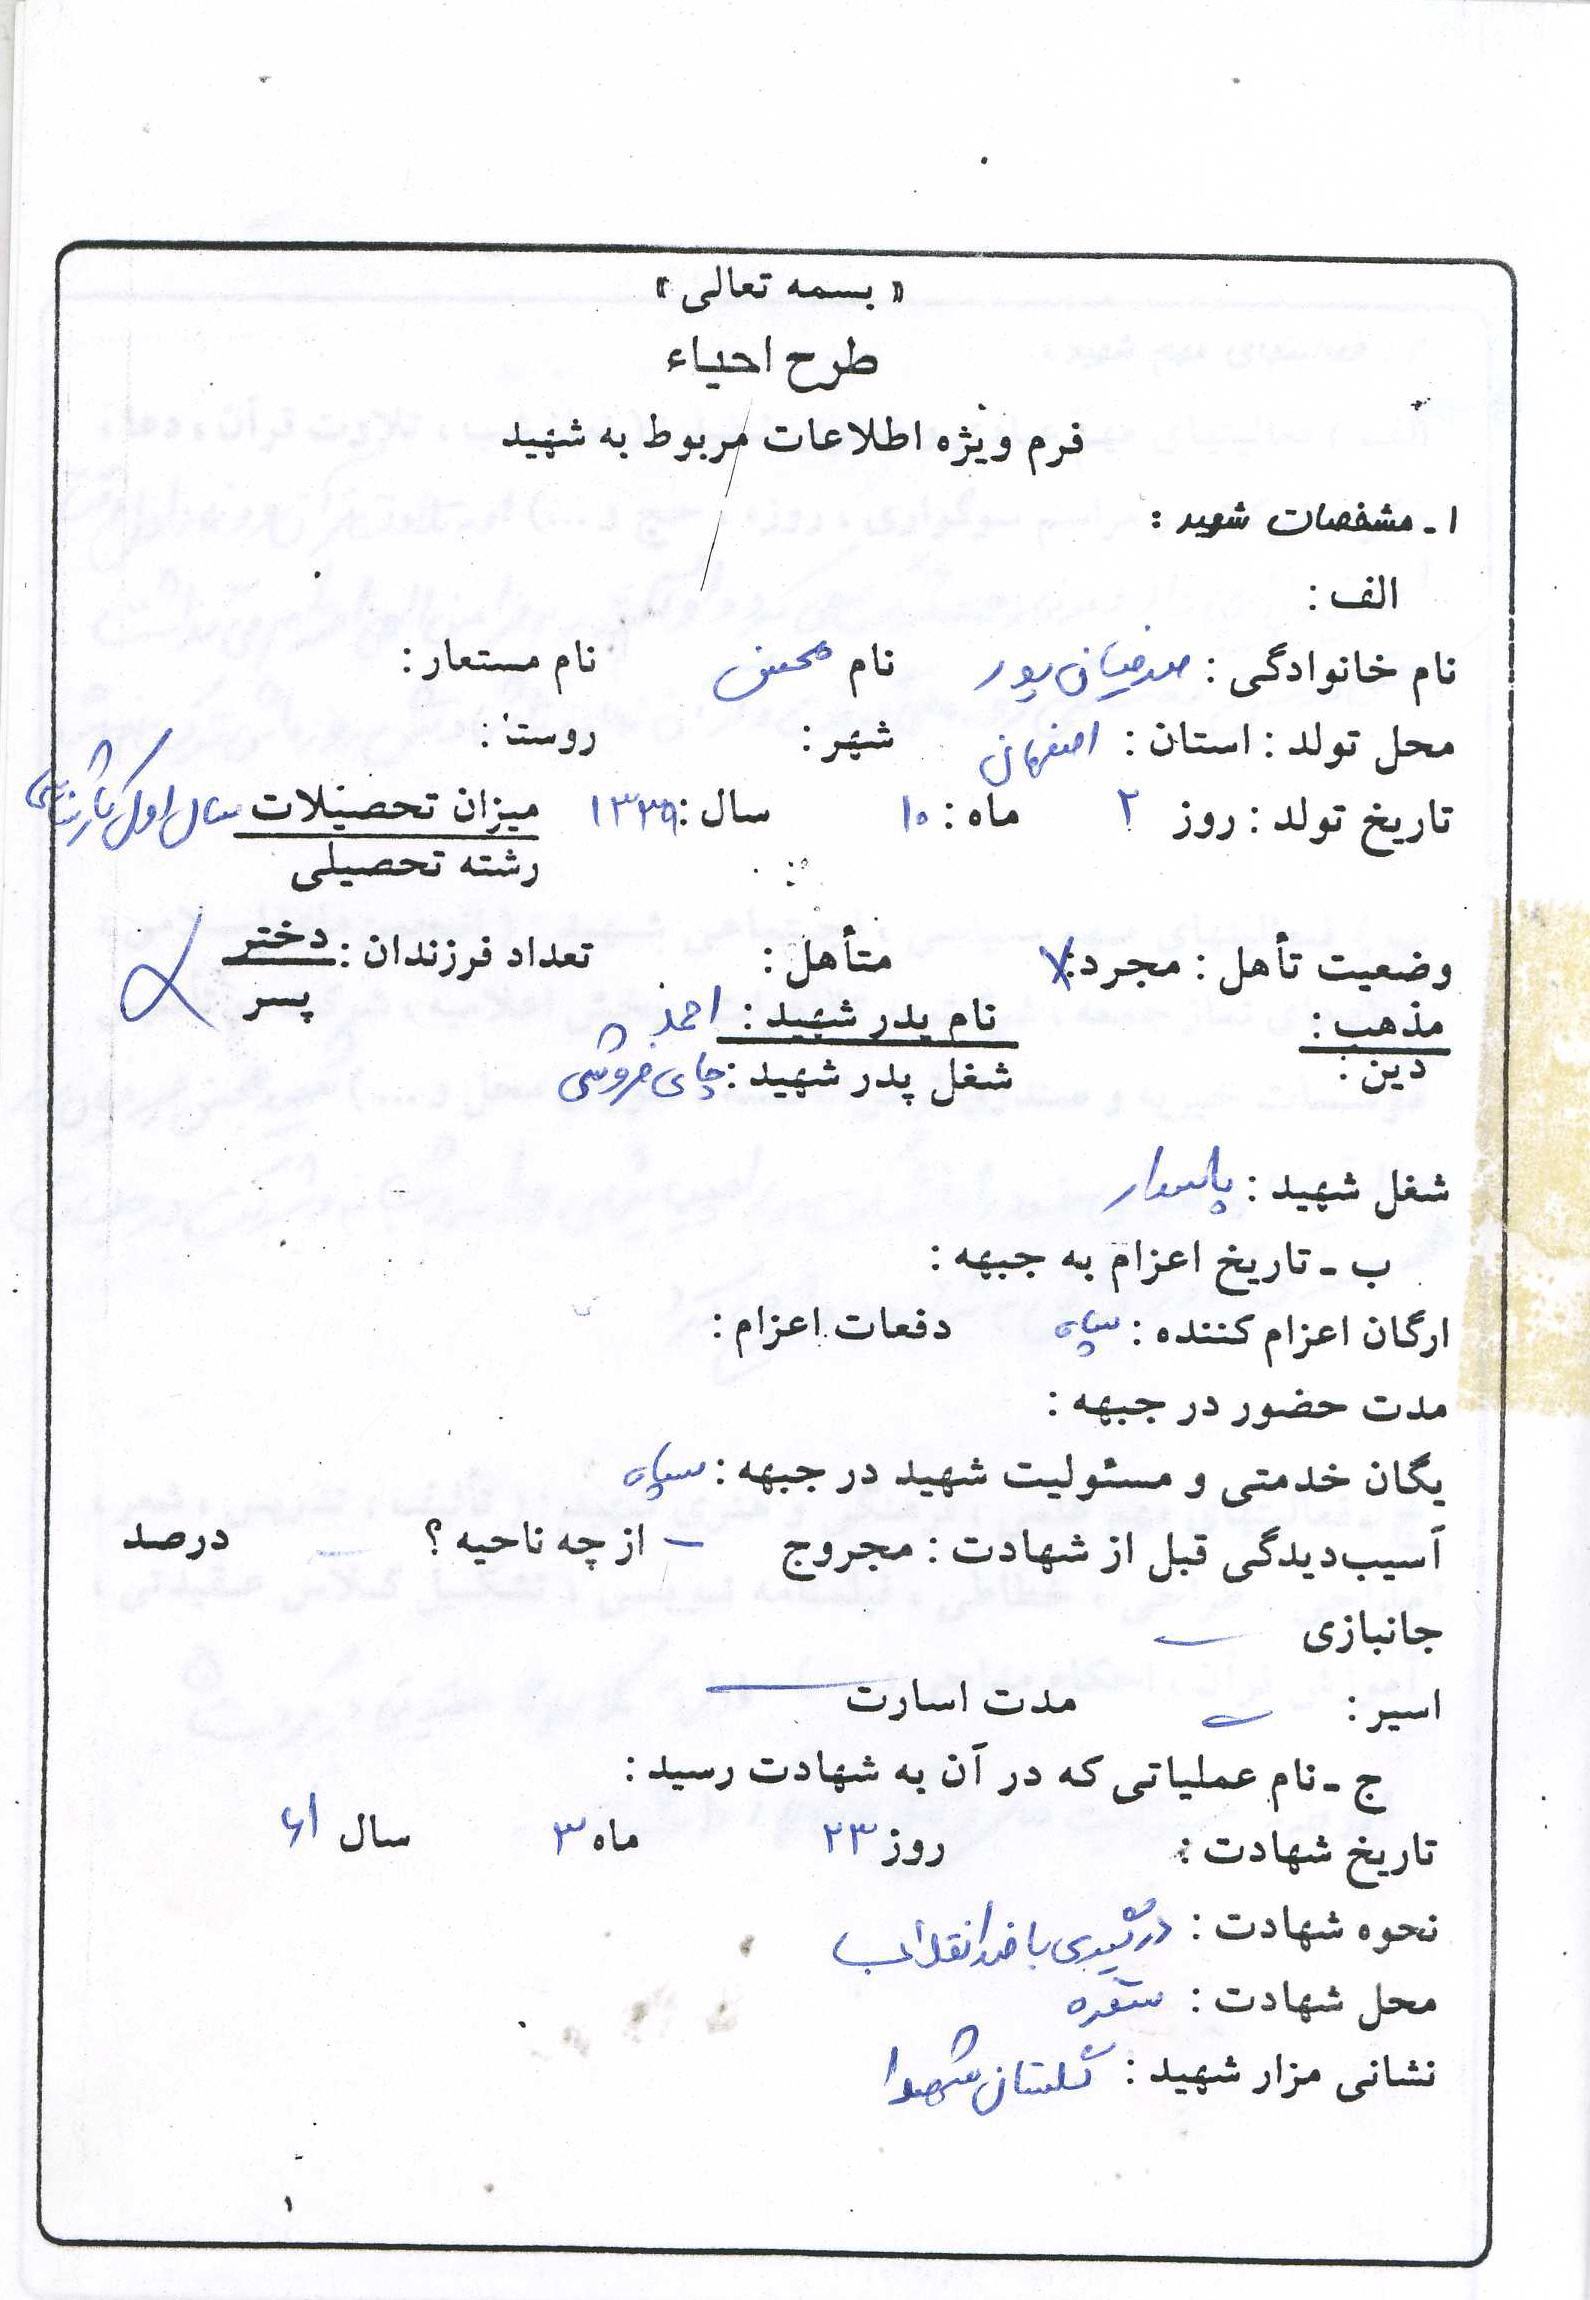 « بسمه تعالی »
طرح احیاء
فرم ویژه اطلاعات مربوط به شهید
۱ ـ مشخصات شهید :
الف :
نام خانوادگی : نام محسن نام مستعار :
محل تولد : استان : اصفهان شهر : روستا :
تاریخ تولد : روز ۲ ماه : ۱۰ سال : ۱۳۳۹ میزان تحصیلات سال اول
رشته تحصیلی
وضعیت تأهل : مجرد : متأهل : تعداد فرزندان : دختر
پسر
مذهب : نام پدر شهید : احمد
دین : شغل پدر شهید : چای فروشی
شغل شهید : پاسدار
ب ـ تاریخ اعزام به جبهه :
ارگان اعزام کننده : سپاه دفعات اعزام :
مدت حضور در جبهه :
یگان خدمتی و مسئولیت شهید در جبهه : سپاه
آسیب‌دیدگی قبل از شهادت : مجروح – از چه ناحیه ؟ – درصد
جانبازی –
اسیر : – مدت اسارت –
ج ـ نام عملیاتی که در آن به شهادت رسید :
تاریخ شهادت : روز ۲۳ ماه ۳ سال ۶۱
نحوه شهادت : درگیری با ضد انقلاب
محل شهادت :
نشانی مزار شهید : گلستان شهدا
۱